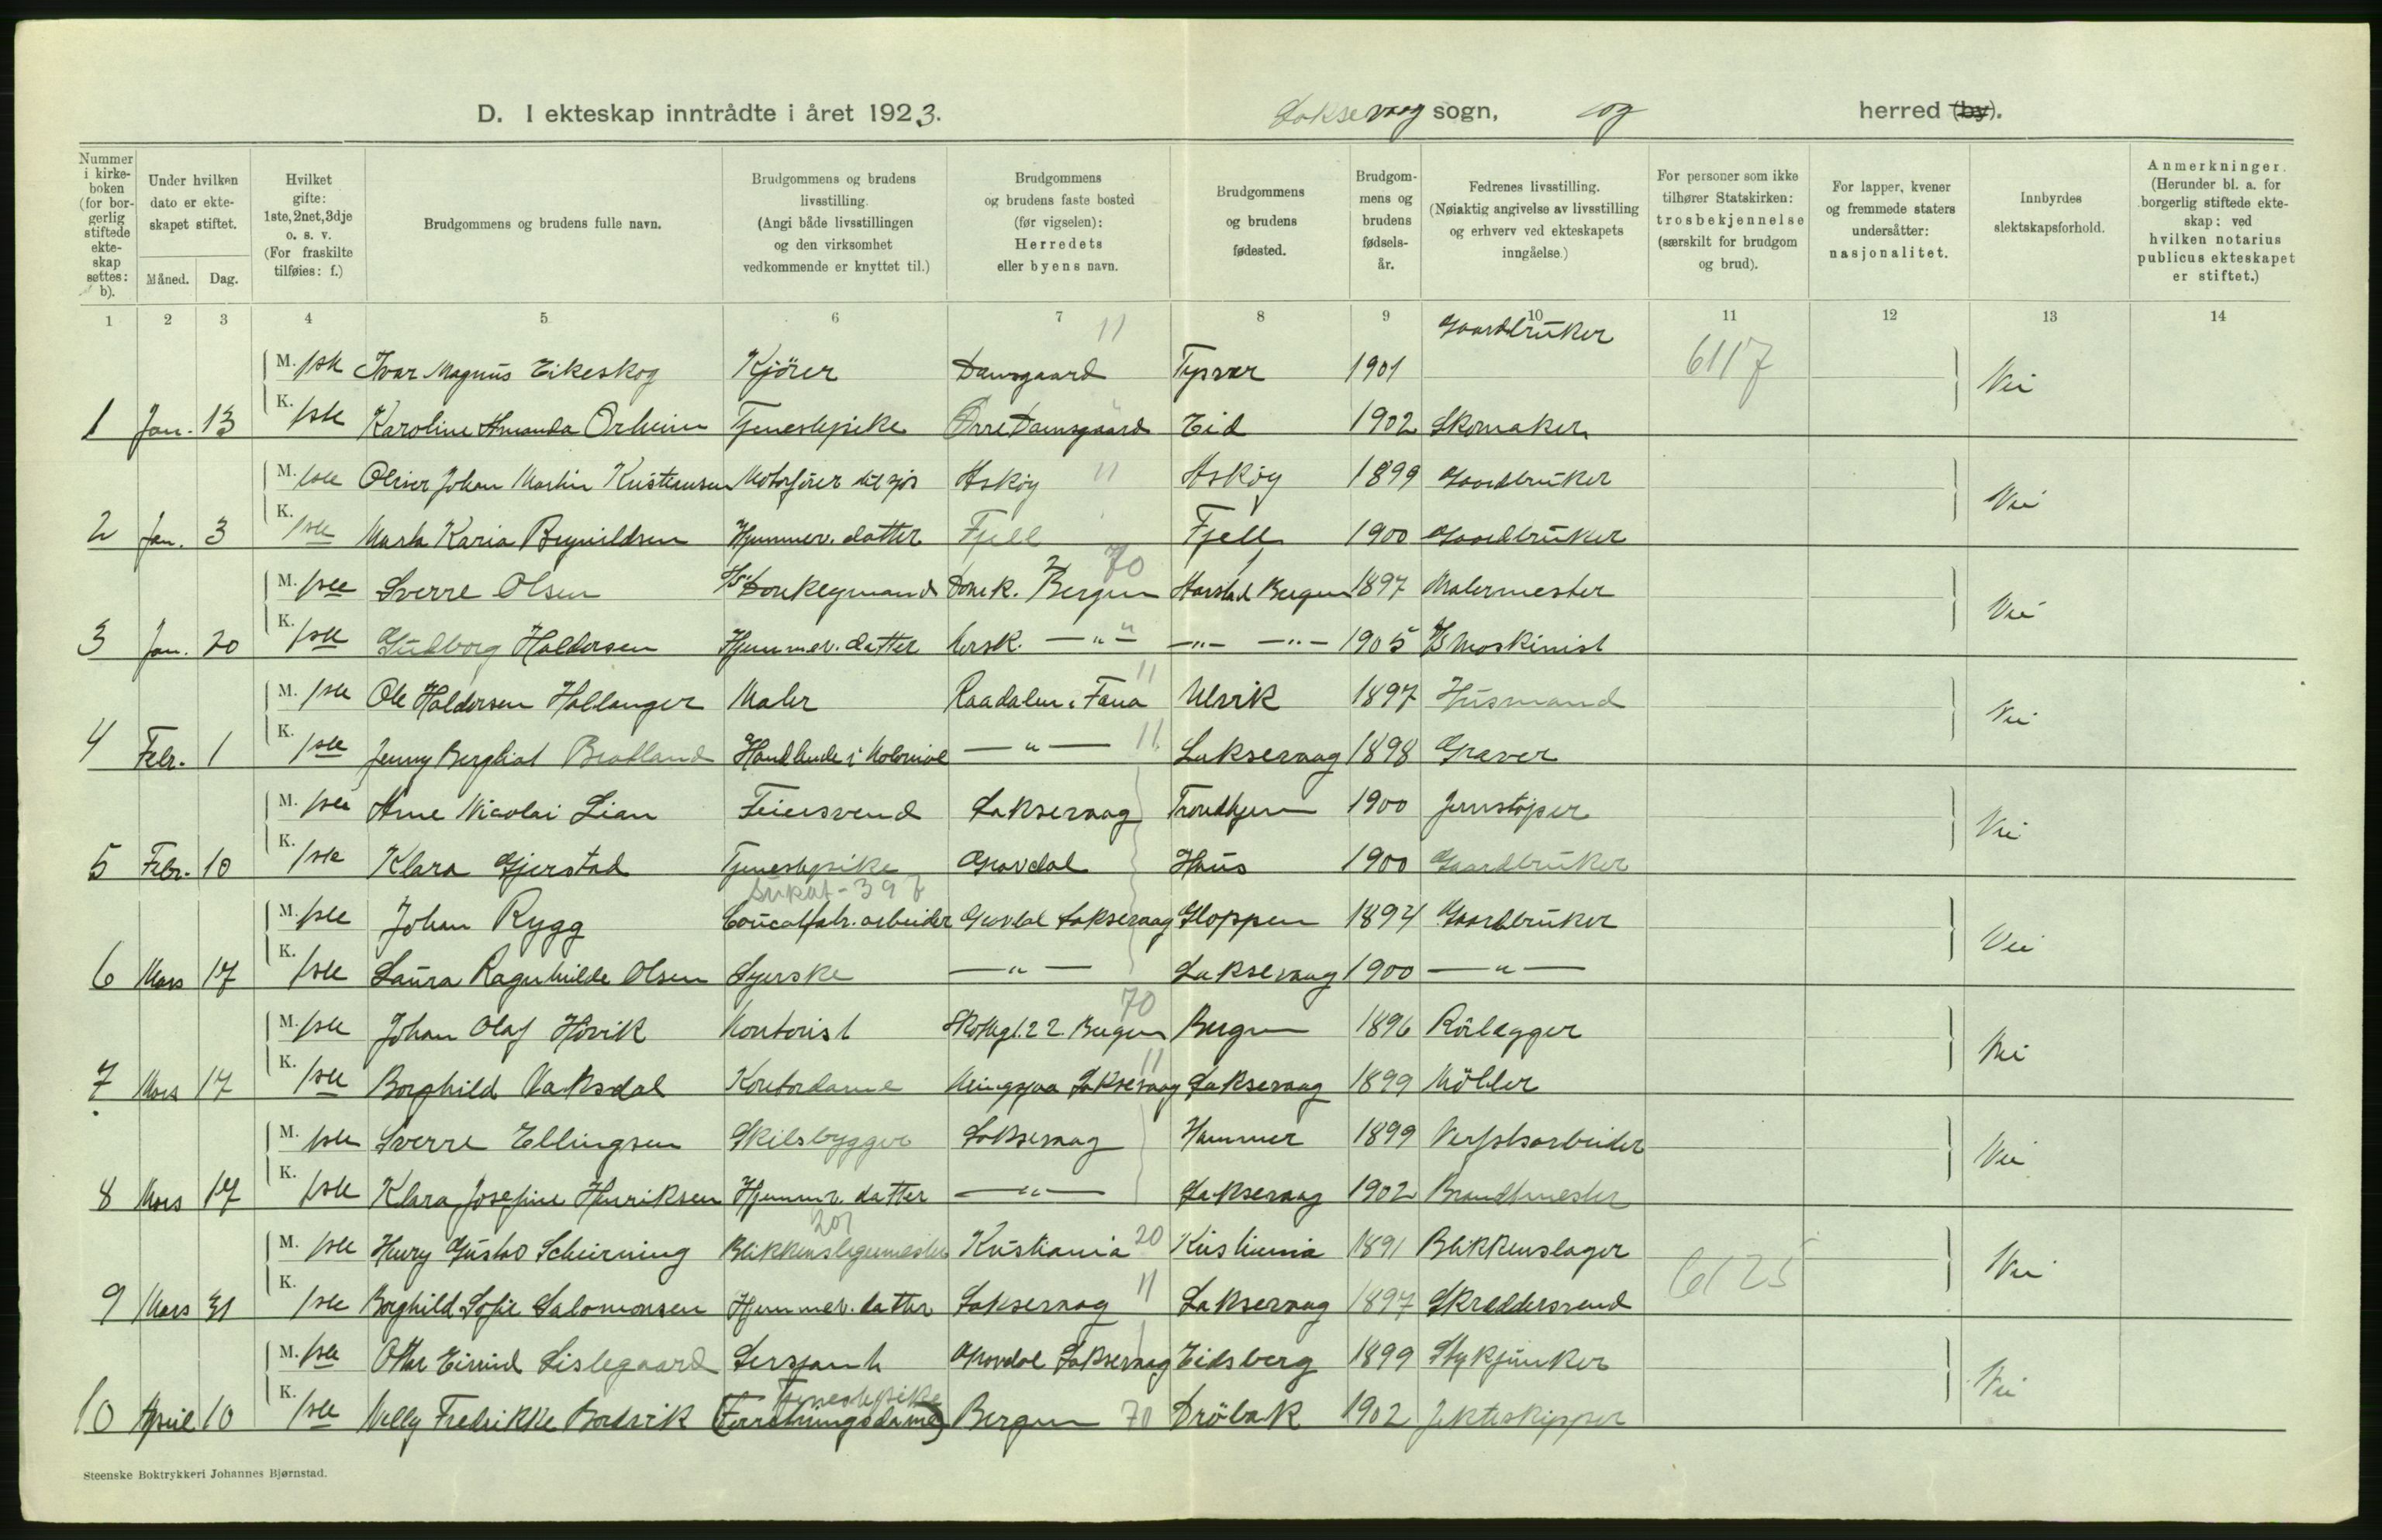 D. I ekteskap inntrådte i året 1923.
Laksevaag sogn, og herred (by).
Nummer i kirkeboken (for borgerlig stiftede ekteskap settes: b).
Under hvilken dato er ekteskapet stiftet.
Måned. Dag.
Hvilket gifte: 1ste, 2net, 3dje o. s. v. (For fraskilte tilføies: f.)
Brudgommens og brudens fulle navn.
Brudgommens og brudens livsstilling. (Angi både livsstillingen og den virksomhet vedkommende er knyttet til.)
Brudgommens og brudens faste bosted (før vigselen): Herredets eller byens navn.
Brudgommens og brudens fødested.
Brudgommens og brudens fødselsår.
Fedrenes livsstilling. (Nøiaktig angivelse av livsstilling og erhverv ved ekteskapets inngåelse.)
For personer som ikke tilhører Statskirken: trosbekjennelse (særskilt for brudgom og brud).
For lapper, kvener og fremmede staters undersåtter: nasjonalitet.
Innbyrdes slektskapsforhold.
Anmerkninger. (Herunder bl. a. for borgerlig stiftede ekteskap: ved hvilken notarius publicus ekteskapet er stiftet.)
1 2 3 4 5 6 7 8 9 10 11 12 13 14
11
M. 1ste Ivar Magnus Eikeskog Kjörer Damsgaard Tysvær 1901 Gaardbruker 6117 Nei
1 Jan. 13 K. 1ste Karoline Amanda Orheim Tjenestepike Övre Damsgaard Eid 1902 Skomaker
M. 1ste Oliver Johan Martin Kristiansen Motorfører til sjös Asköy 11 Asköy 1899 Gaardbruker Nei
2 Jan. 3 K. 1ste Marta Karia Brynildsen Hjemmev. datter Fjell Fjell 1900 Gaardbruker
70
M. 1ste Sverre Olsen D/S Donkeymand Domk. Bergen Harstad Bergen 1897 Malermester Nei
3 Jan. 20 K. 1ste Gudborg Haldorsen Hjemmev. datter Korsk. —"— —"— —"— 1905 D/S Maskinist
11
M. 1ste Ole Haldorsen Hallanger Maler Raadalen i Fana Ulvik 1897 Husmand Nei
4 Febr. 1 K. 1ste Jenny Bergliot Bratland Handlende i Kolonial —"— 11 Laksevaag 1898 Graver
M. 1ste Arne Nicolai Lian Feiersvend Laksevaag Trondhjem 1900 Jernstöper Nei
5 Febr. 10 K. 1ste Klara Gjerstad Tjenestepike Gravdal Haus 1900 Gaardbruker
M. 1ste Johan Rygg arbeider Gravdal Laksevaag Gloppen 1894 Gaardbruker Nei
6 Mars 17 K. 1ste Laura Ragnhilde Olsen Syerske —"— Laksevaag 1900 —"—
70
M. 1ste Johan Olaf Hövik Kontorist 22 Bergen Bergen 1896 Rörlegger Nei
11
7 Mars 17 K. 1ste Borghild Vaksdal Kontordame Laksevaag Laksevaag 1899 Möller
M. 1ste Sverre Ellingsen Skibsbygger Laksevaag Hammer 1899 Verftsarbeider Nei
8 Mars 17 K. 1ste Klara Josefine Henriksen Hjemmev. datter —"— Laksevaag 1902 Brandmester
201
M. 1ste Henry Gustav Scheirning Blikkenslagermester Kristiania 20 Kristiania 1891 Blikkenslager 6125 Nei
9 Mars 31 K. 1ste Borghild Sofie Salomonsen Hjemmev. datter Laksevaag 11 Laksevaag 1897 Skreddersvend
M. 1ste Ottar Eivind Lislegaard Sersjant Gravdal Laksevaag Eidsberg 1899 Stykjunker Nei
Tjenestepike
10 April 10 K. 1ste Nelly Fredrikke Bordvik (Forretningsdame) Bergen 70 Dröbak 1902 Jekteskipper
Steenske Boktrykkeri Johannes Bjørnstad.